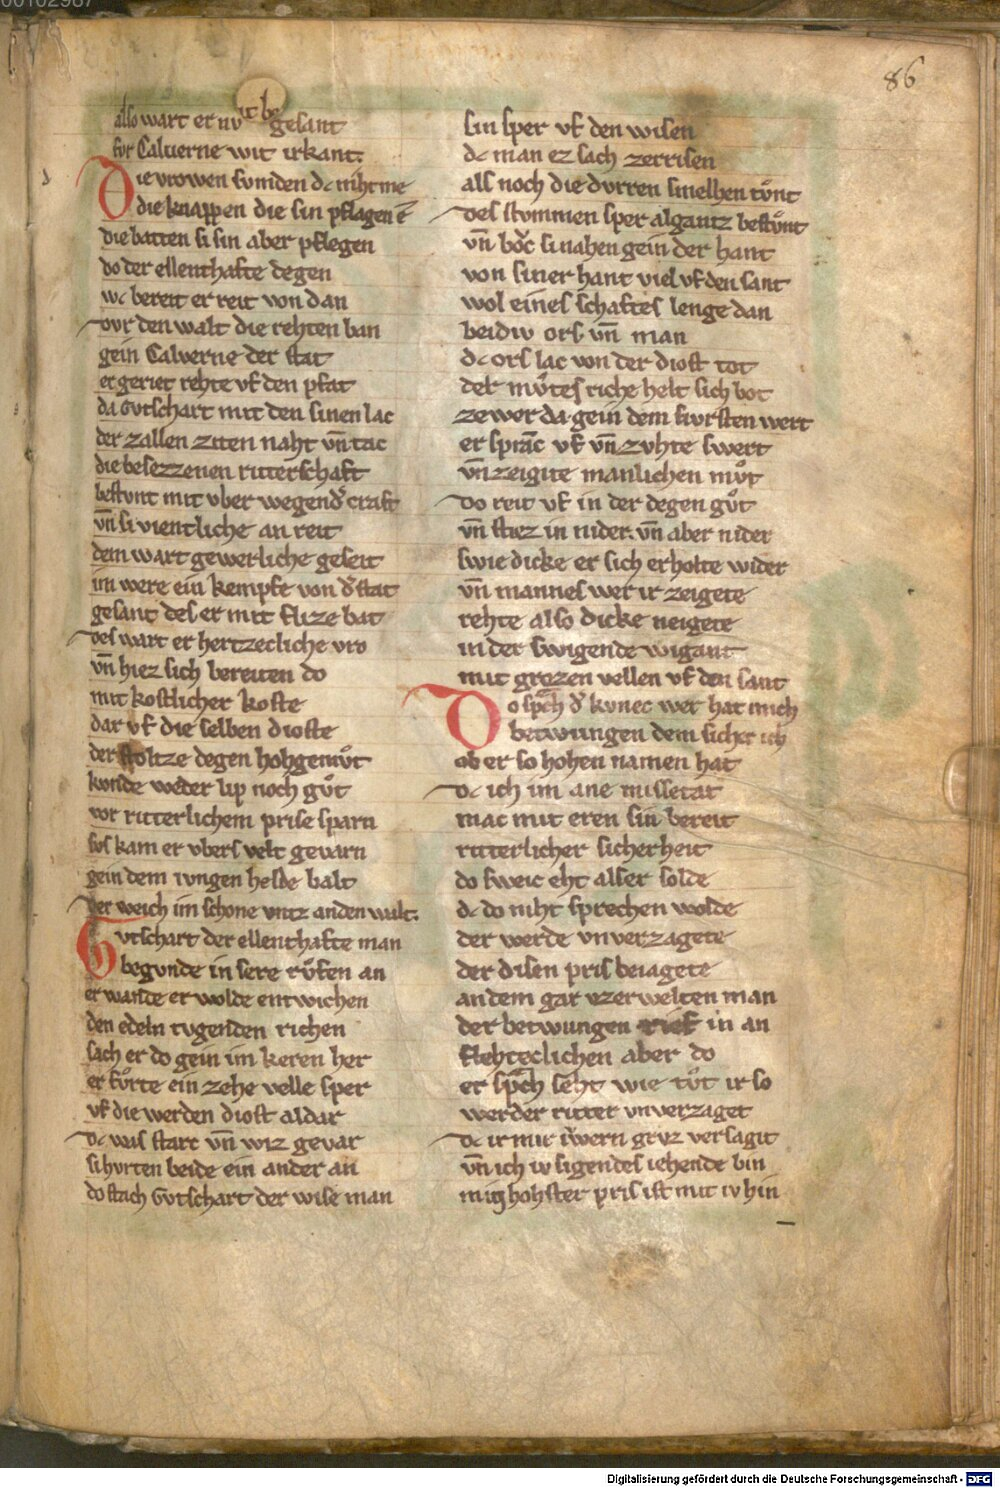 86
also wart er nv wit be gesant
fvr Caluerne wit irkant.
Die vrowen funden dc niht me
die knappen die sin pflagen e
die batten si sin aber pflegen
do der ellenthafte degen
wc bereit er reit von dan
dvr den walt die rehten ban
gein Caluerne der stat
er geriet rehte vf den pfat
da Gutschart mit den sinen lac
der zallen ziten naht vn̄ tac
die besezzenen ritterschaft
bestvnt mit vber wegend craft
vn̄ si vientliche an reit
dem wart gewerliche geseit
im were ein kempfe von d stat
gesant des er mit flize bat
des wart er hertzecliche vro
vn̄ hiez sich bereiten do
mit kostlicher koste
dar vf die selben dioste
der stoltze degen hohgemvͦt
kunde weder lip noch gvͦt
vor ritterlichem prise sparn
svs kam er vbers velt gevarn
gein dem iungen helde balt
der weich im schone vntz an den walt.
Gvtschart der ellenthafte man
begvnde in sere rvͦfen an
er wande er wolde entwichen
den edeln tvgenden richen
sach er do gein im keren her
er fvͦrte ein zehe velle sper
vf die werden diost aldar
dc was starc vn̄ wiz gevar
si hvrten beide ein ander an
do stach Gvtschart der wise man
sin sper vf den wisen
dc man ez sach zerrisen
als noch die dvrren sinelhen tvͦnt
des stvmmen sper algantz bestvͦnt
vn̄ bovc si nahen gein der hant
von siner hant viel vf den sant
wol eines schaftes lenge dan
beidiv ors vn̄ man
dc ors lac von der diost tot
der mvͦtes riche helt sich bot
ze wer da gein dem fvrsten wert
er sprāc vf vn̄ zvhte swert
vn̄ zeigite manlichen mvͦt
do reit vf in der degen gvͦt
vn̄ stiez in nider. vn̄ aber nider
swie dicke er sich erholte wider
vn̄ mannes wer ir zeigete
rehte also dicke neigete
in der swigende wigant
mit grozen vellen vf den sant
Do spͣch d kvnec wer hat mich
betwungen dem sicher ich
ob er so hohen namen hat
dc ich im ane missetat
mac mit eren sin bereit
ritterlicher sicherheit
do sweic eht alser solde
dc do niht sprechen wolde
der werde vnverzagete
der disen pris beiagete
an dem gar vzerwelten man
der betwungen rief in an
flehteclichen aber do
er spͣch seht wie tvͦt ir so
werder ritter vnverzaget
dc ir mir iwern grvz versagit
vn̄ ich iv sigendes iehende bin
min hohster pris ist mit iv hin
Digitalisierung gefördert durch die Deutsche Forschungsgemeinschaft - DFG